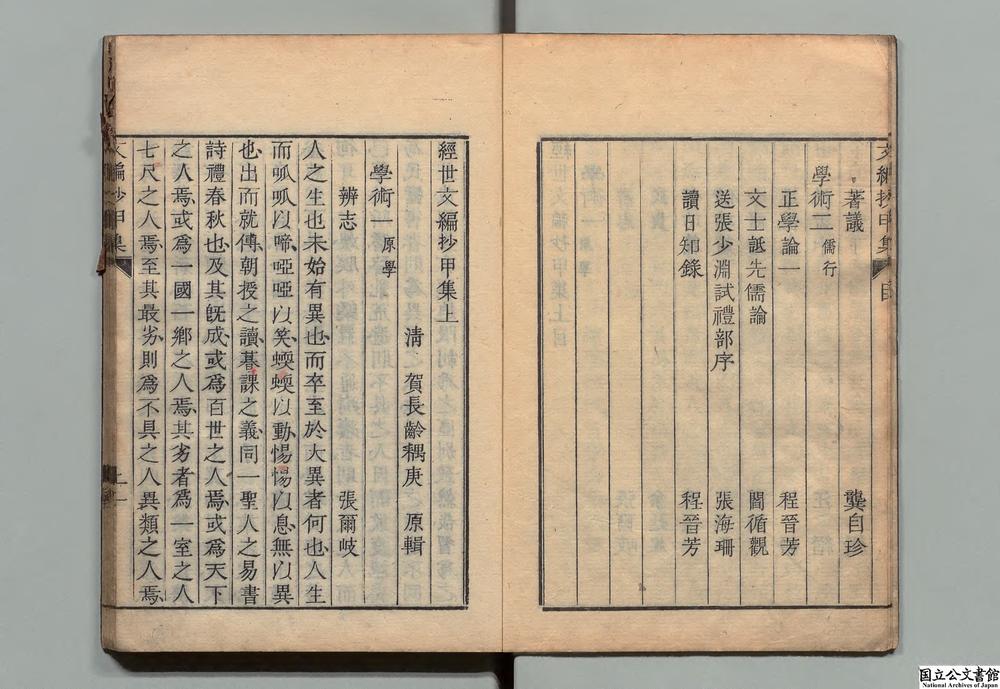 著議 龔自珍
學術二 儒行
正學論一 程晉芳
文士詆先儒論 閻循觀
送張少淵試禮部序 張海珊
讀日知錄 程晉芳
文編抄甲集 目
經世文編抄甲集上
清 賀長齡耦庚 原輯
學術一 原學
辨志 張爾岐
人之生也未始有異也而卒至於大異者何也人生
而呱呱以啼啞啞以笑蝡蝡以動惕惕以息無以異
也出而就傅朝授之讀暮課之義同一聖人之易書
詩禮春秋也及其旣成或爲百世之人焉或爲天下
之人焉或爲一國一鄉之人焉其劣者爲一室之人
七尺之人焉至其最劣則爲不具之人異類之人焉
文編抄甲集 上 一
国立公文書館
National Archives of Japan